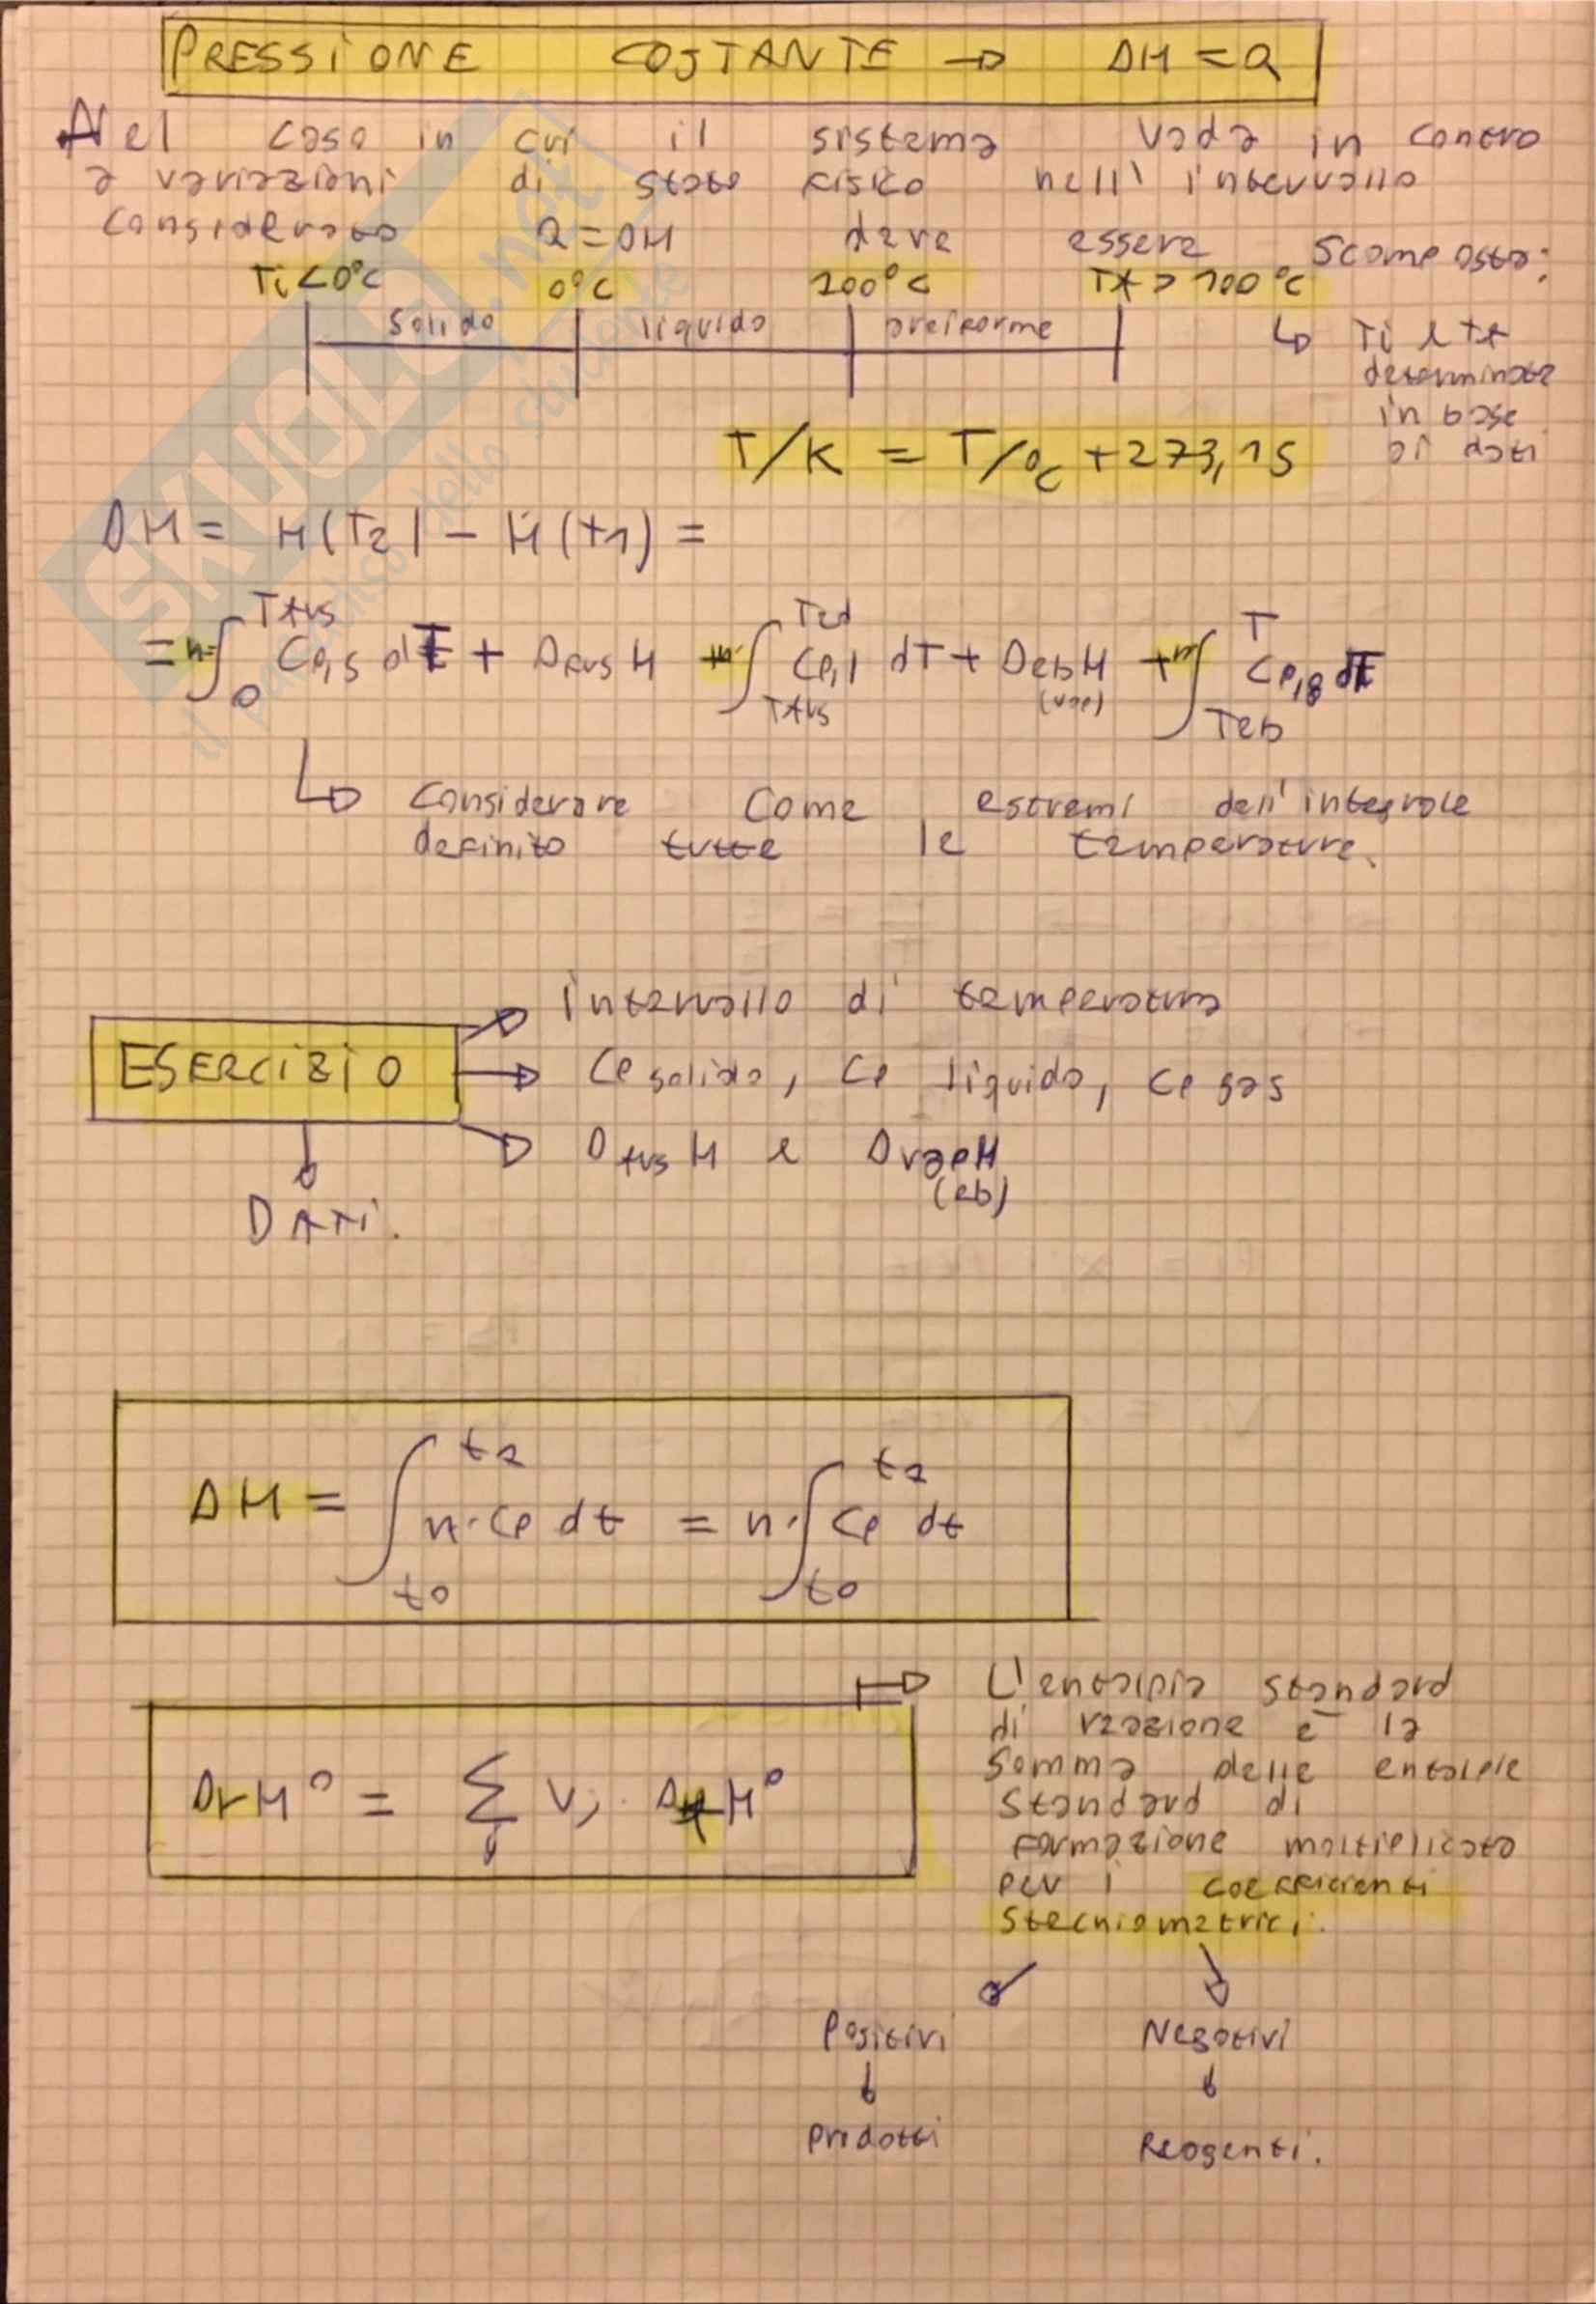 PRESSIONE COSTANTE → ΔH = Q
Nel caso in cui il sistema vada in contro
a variazioni di stato fisico nell' intervallo
considerato Q = ΔH deve essere scomposto:
Ti < 0°C 0°C 100°C Tf > 100°C
solido liquido aeriforme
↳ Ti e Tf
determinate
in base
ai dati
T/K = T/°C + 273,15
ΔH = H(T2) - H(t1) =
= n·∫₀^Tfus Cp,s dT + Δfus H + n·∫_Tfus^Teb Cp,l dT + Δeb H (vap) + n∫_Teb^T Cp,g dT
↳ Considerare come estremi dell'integrale
definito tutte le temperature.
intervallo di temperatura
ESERCIZIO → Cp solido, Cp liquido, Cp gas
Δfus H e Δvap H
(eb)
DATI.
ΔH = ∫_t0^t2 n·Cp dt = n·∫_t0^t2 Cp dt
ΔrH° = Σj νj · ΔfH°
↦ L'entalpia standard
di reazione è la
somma delle entalpie
standard di
formazione moltiplicato
per i coefficienti
stechiometrici.
Positivi Negativi
↓ ↓
Prodotti Reagenti.
SKUOLA.net
il paradiso dello studente